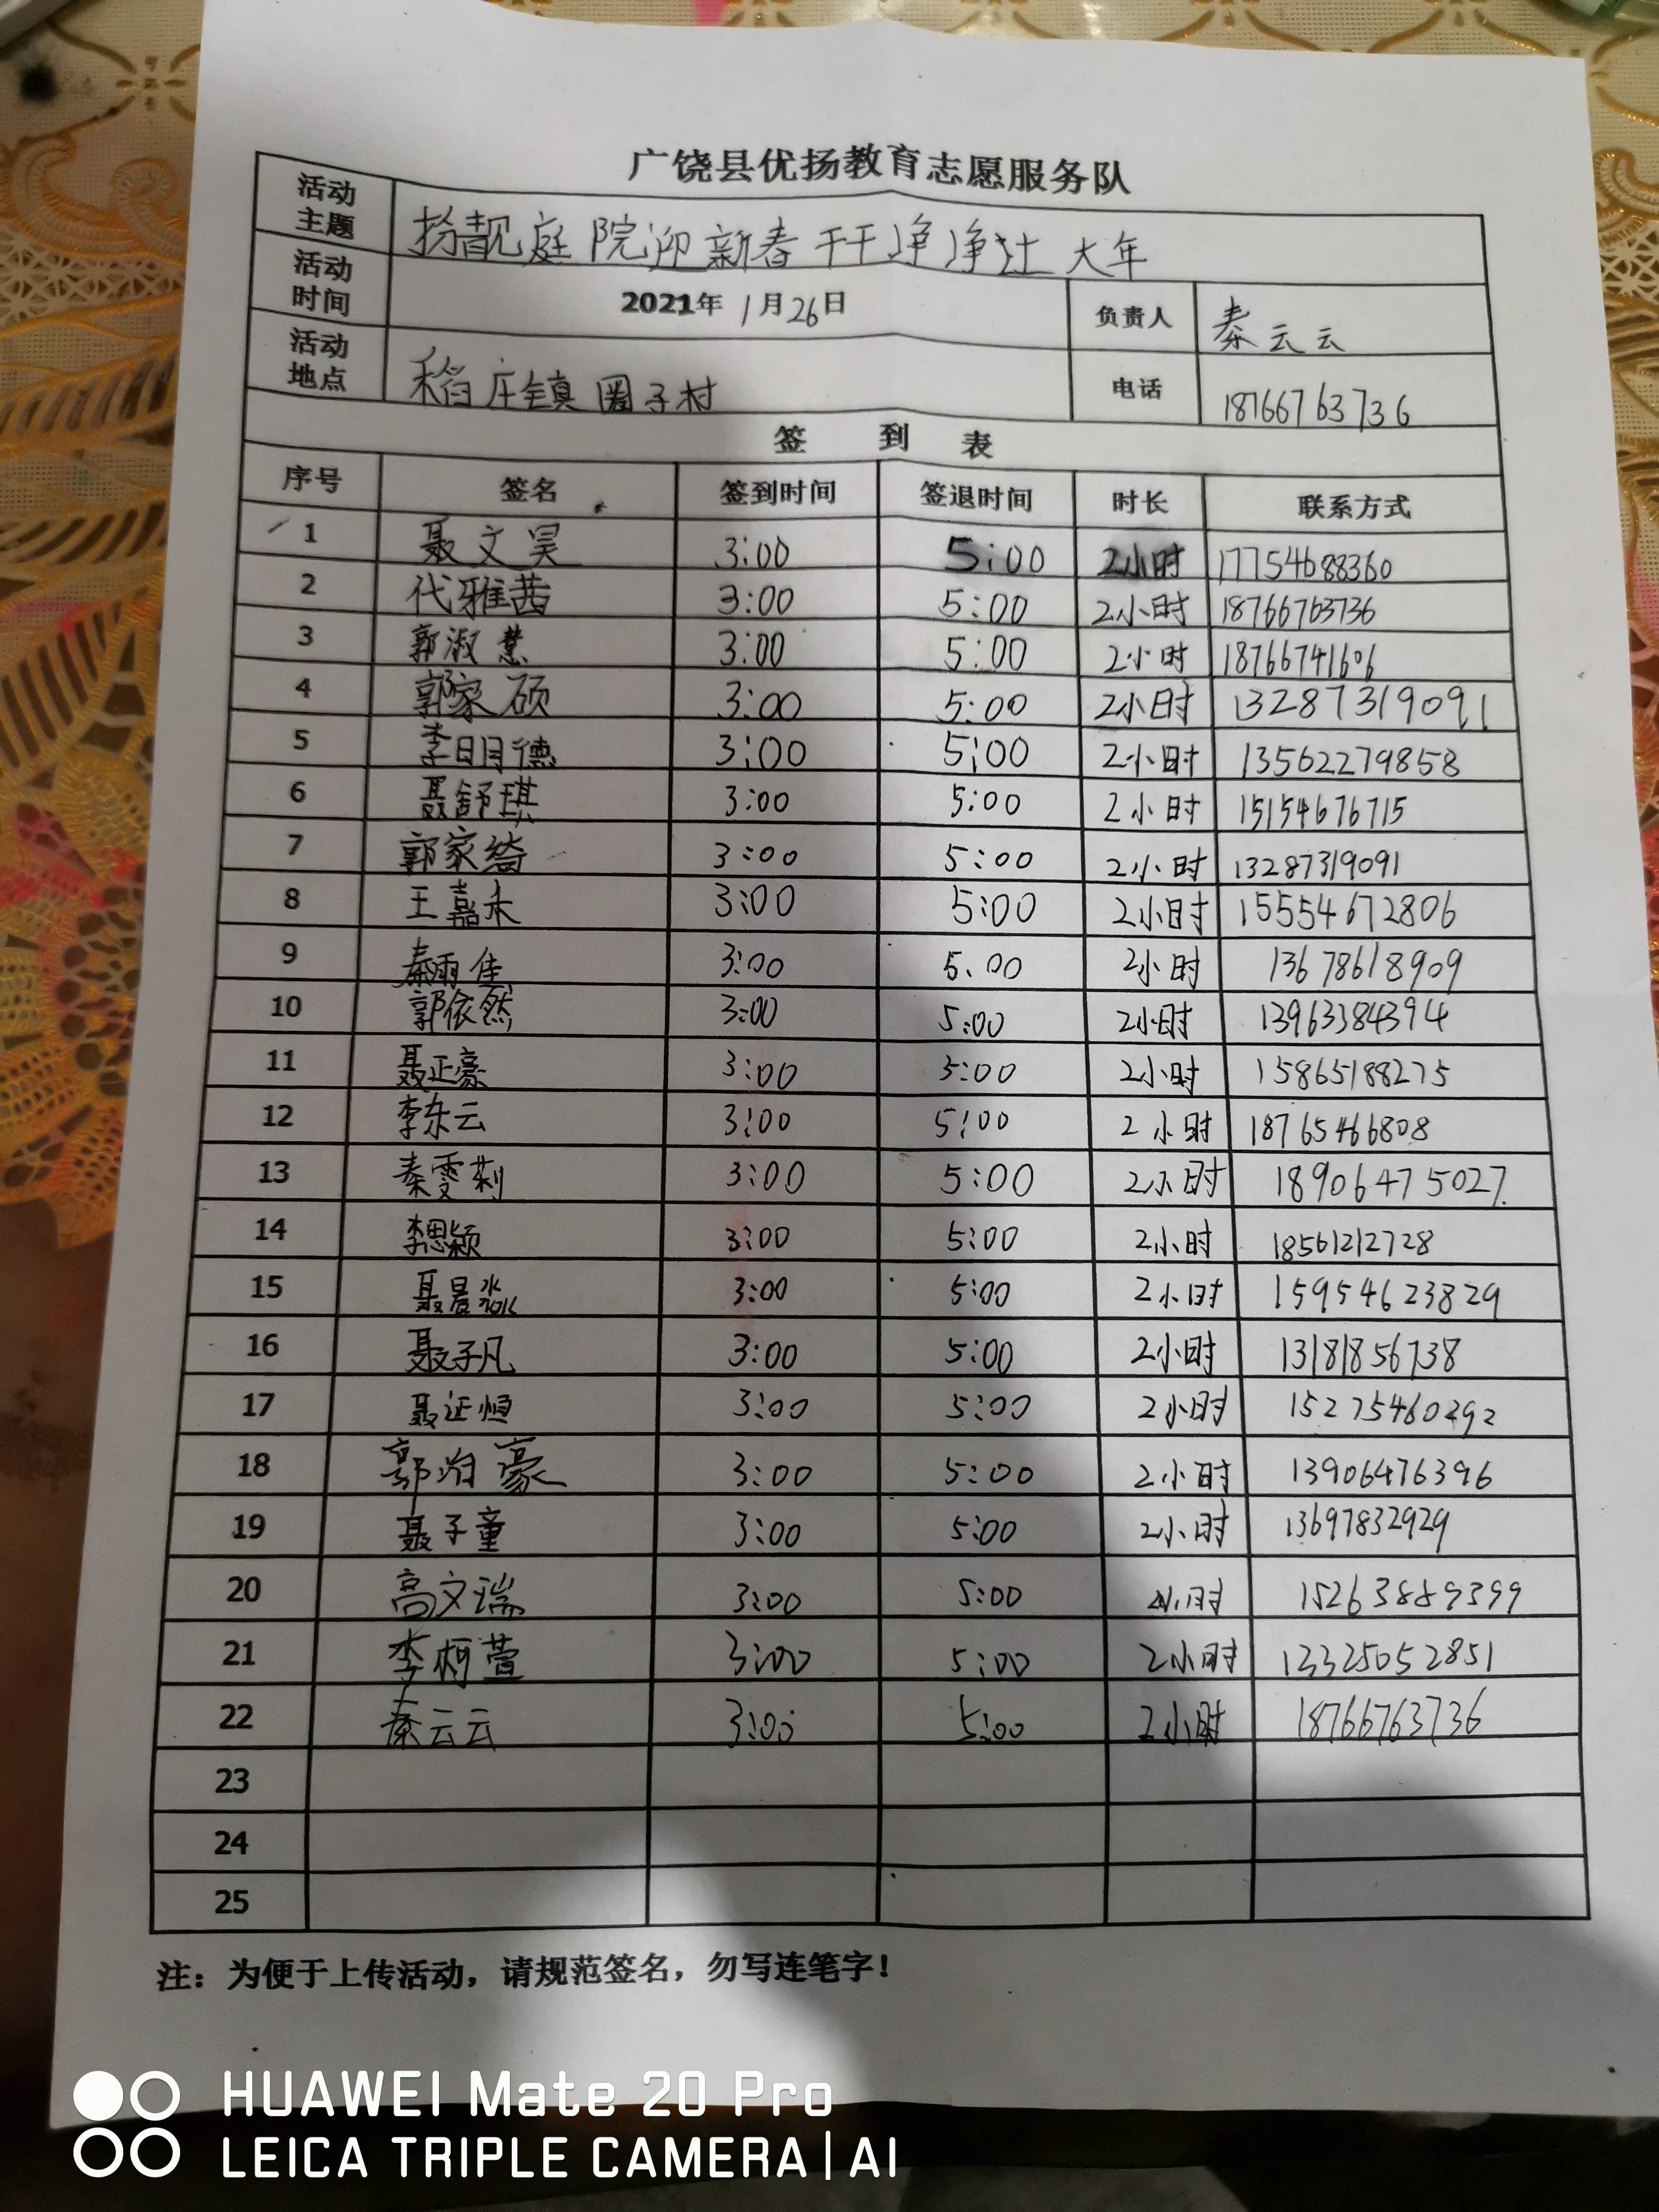 广饶县优扬教育志愿服务队
活动主题 扮靓庭院迎新春干干净净过大年
活动时间 2021年1月26日 负责人 秦云云
活动地点 稻庄镇圈子村 电话 18766763736
签 到 表
序号 签名 签到时间 签退时间 时长 联系方式
1 聂文昊 3:00 5:00 2小时 17754688360
2 代雅茜 3:00 5:00 2小时 18766763736
3 郭淑慧 3:00 5:00 2小时 18766741606
4 郭家硕 3:00 5:00 2小时 13287319091
5 李明德 3:00 5:00 2小时 13562279858
6 聂舒琪 3:00 5:00 2小时 15154676715
7 郭家绮 3:00 5:00 2小时 13287319091
8 王嘉禾 3:00 5:00 2小时 15554672806
9 秦雨佳 3:00 5:00 2小时 13678618909
10 郭依然 3:00 5:00 2小时 13963384394
11 聂正豪 3:00 5:00 2小时 15865188275
12 李东云 3:00 5:00 2小时 18765466808
13 秦雯莉 3:00 5:00 2小时 18906475027
14 李思颖 3:00 5:00 2小时 18561212728
15 聂晨淼 3:00 5:00 2小时 15954623829
16 聂子凡 3:00 5:00 2小时 13181856738
17 聂证恒 3:00 5:00 2小时 15275460292
18 郭 豪 3:00 5:00 2小时 13906476396
19 聂子童 3:00 5:00 2小时 13697832929
20 高文瑞 3:00 5:00 2小时 15263889399
21 李柯萱 3:00 5:00 2小时 13325052851
22 秦云云 3:00 5:00 2小时 18766763736
23
24
25
注：为便于上传活动，请规范签名，勿写连笔字！
HUAWEI Mate 20 Pro
LEICA TRIPLE CAMERA | AI